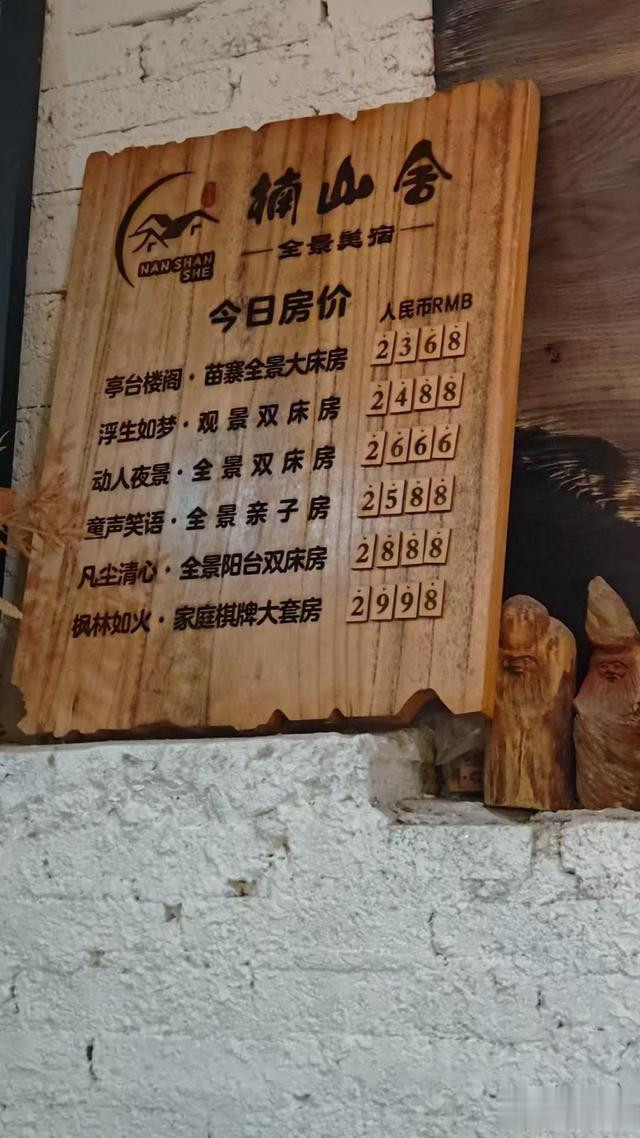 楠山舍
NAN SHAN
SHE
全景美宿
今日房价 人民币RMB
亭台楼阁·苗寨全景大床房 2368
浮生如梦·观景双床房 2488
动人夜景·全景双床房 2666
童声笑语·全景亲子房 2588
凡尘清心·全景阳台双床房 2888
枫林如火·家庭棋牌大套房 2998